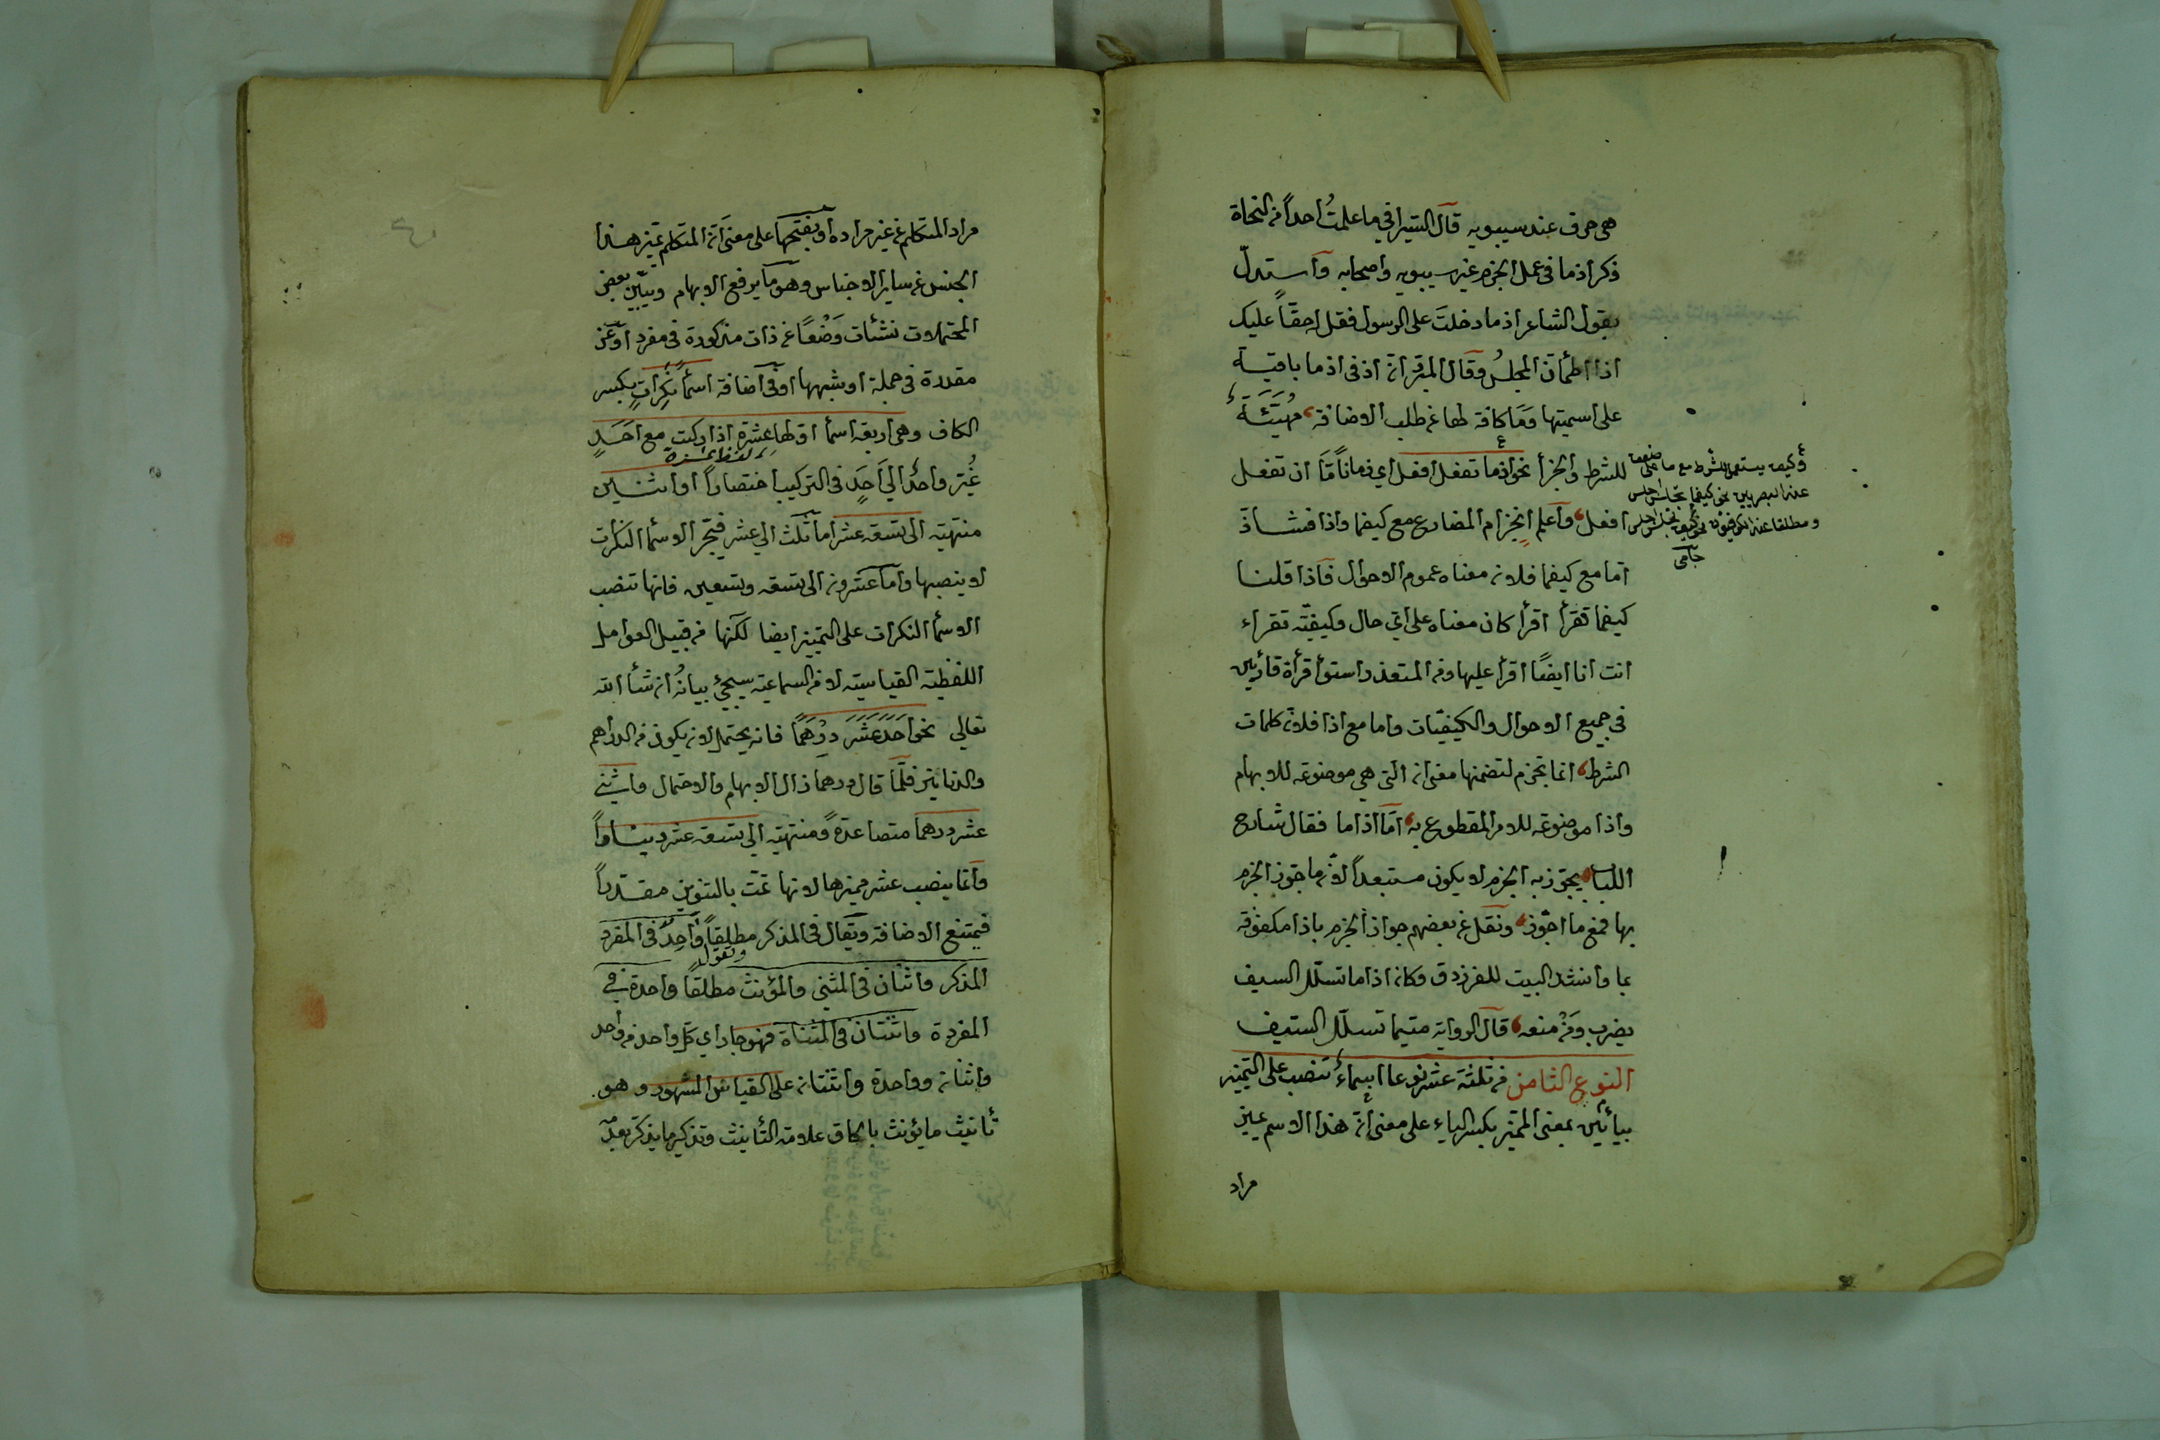 هى حرف عند سيبويه قال السيرافي ما علمتُ احداً من النحاة
ذكر اذما فى عمل الجزم غير سيبويه واصحابه واستدلّ
بقول الشاعر اذما دخلتَ على الرسول فقل له حقاً عليك
اذا اطمأنّ المجلسُ وقال المبرّد انّ اذ فى اذما باقية
على اسميتها وما كافة لها عن طلب الاضافة مُهَيِّئَةٌ
للشرط والجزأ نحو اذما تفعل افعل اي زماناً مّا ان تفعل
افعل واعلم انجزام المضارع مع كيفما واذا فشاذّ
امّا مع كيفما فلان معناه عموم الاحوال فاذا قلنا
كيفما تقرأ اقرأ كان معناه على ايّ حال وكيفيّة تقراء
انت انا ايضًا اقرأ عليها ومن المتعذر استوأ قرأة قارئين
فى جميع الاحوال والكيفيّات واما مع اذا فلانّ كلمات
الشرط انما تجزم لتضمنها معنى ان التى هي موضوعة للابهام
واذا موضوعة للامر المقطوع به امّا اذا ما فقال شارح
اللباب يجوّز به الجزم لا يكون مستبعداً لانّ ما جوّز الجزم
بها فمع ما اجوّز ونقل عن بعضهم جواز الجزم باذا مكفوفة
بما وانشد البيت للفرزدق وكان اذا ما تسلل السيف
يضرب ومَنْ منعه قال الرواية متيما تسلّل السيف
النوع الثامن من ثلثة عشر نوعا اسماءٌ تنصب على التميز
بيائين بمعنى المميّز بكسر الياء على معنى انّ هذا الاسم يميز
مراد
وكيف يستعمل للشرط مع ما على ضعف
عند البصريين نحو كيفما تجلس اجلس
ومطلقا عند الكوفيون نحو كيف تجلس اجلس
جامى
مراد المتكلم عن غير مراده او بفتحها على معنى انّ المتكلم تميز هذا
الجنس عن ساير الاجناس وهو ما يرفع الابهام ويبيّن بعض
المحتملات نشئات وَضْعًا عن ذات مذكورة فى مفرد او عن
مقدرة فى جملة او شبهها او فى اضافة اسمأً نَكِراتٍ بكسر
الكاف وهى اربعة اسمأ اولها عشرة اذا ركبت مع اَحَدٍ
لفظ عشرة
غُيّر واحدٌ الى اَحَدٍ فى التركيب اختصاراً او اثنين
منتهية الى تسعة عشر اما ثلث الى عشر فتجر الاسمأ النكرات
لا ينصبها واما عشرون الى تسعة وتسعين فانها تنصب
الاسمأ النكرات على التمييز ايضا لكنّها من قبيل العوامل
اللفظية القياسية لا من السماعية سيجئ بيانُه ان شأ الله
تعالى نحو اَحَدَ عَشَرَ دِرْهَمًا فانه يحتمل لان يكون من الدراهم
والدنانير فلمّا قال درهما زال الابهام والاحتمال واثنى
عشر درهما متصاعدةً ومنتهية الى تسعة عشر ديناراً
وانّما ينصب عشر مميزها لانها تمّت بالتنوين مقدّراً
فيمتنع الاضافة ويقال فى المذكر مطلقاً واحدٌ فى المفرد
وتقول
المذكر واثنان فى المثنى والمؤنث مطلقاً واحدة فى
المفردة واثنتان فى المثناة فهو جار اي كلّ واحد من واحد
واثنان وواحدة واثنتان على القياس المشهور وهو
تأنيث ما يؤنث بالحاق علامة التأنيث وتذكير ما يذكر بعدمه